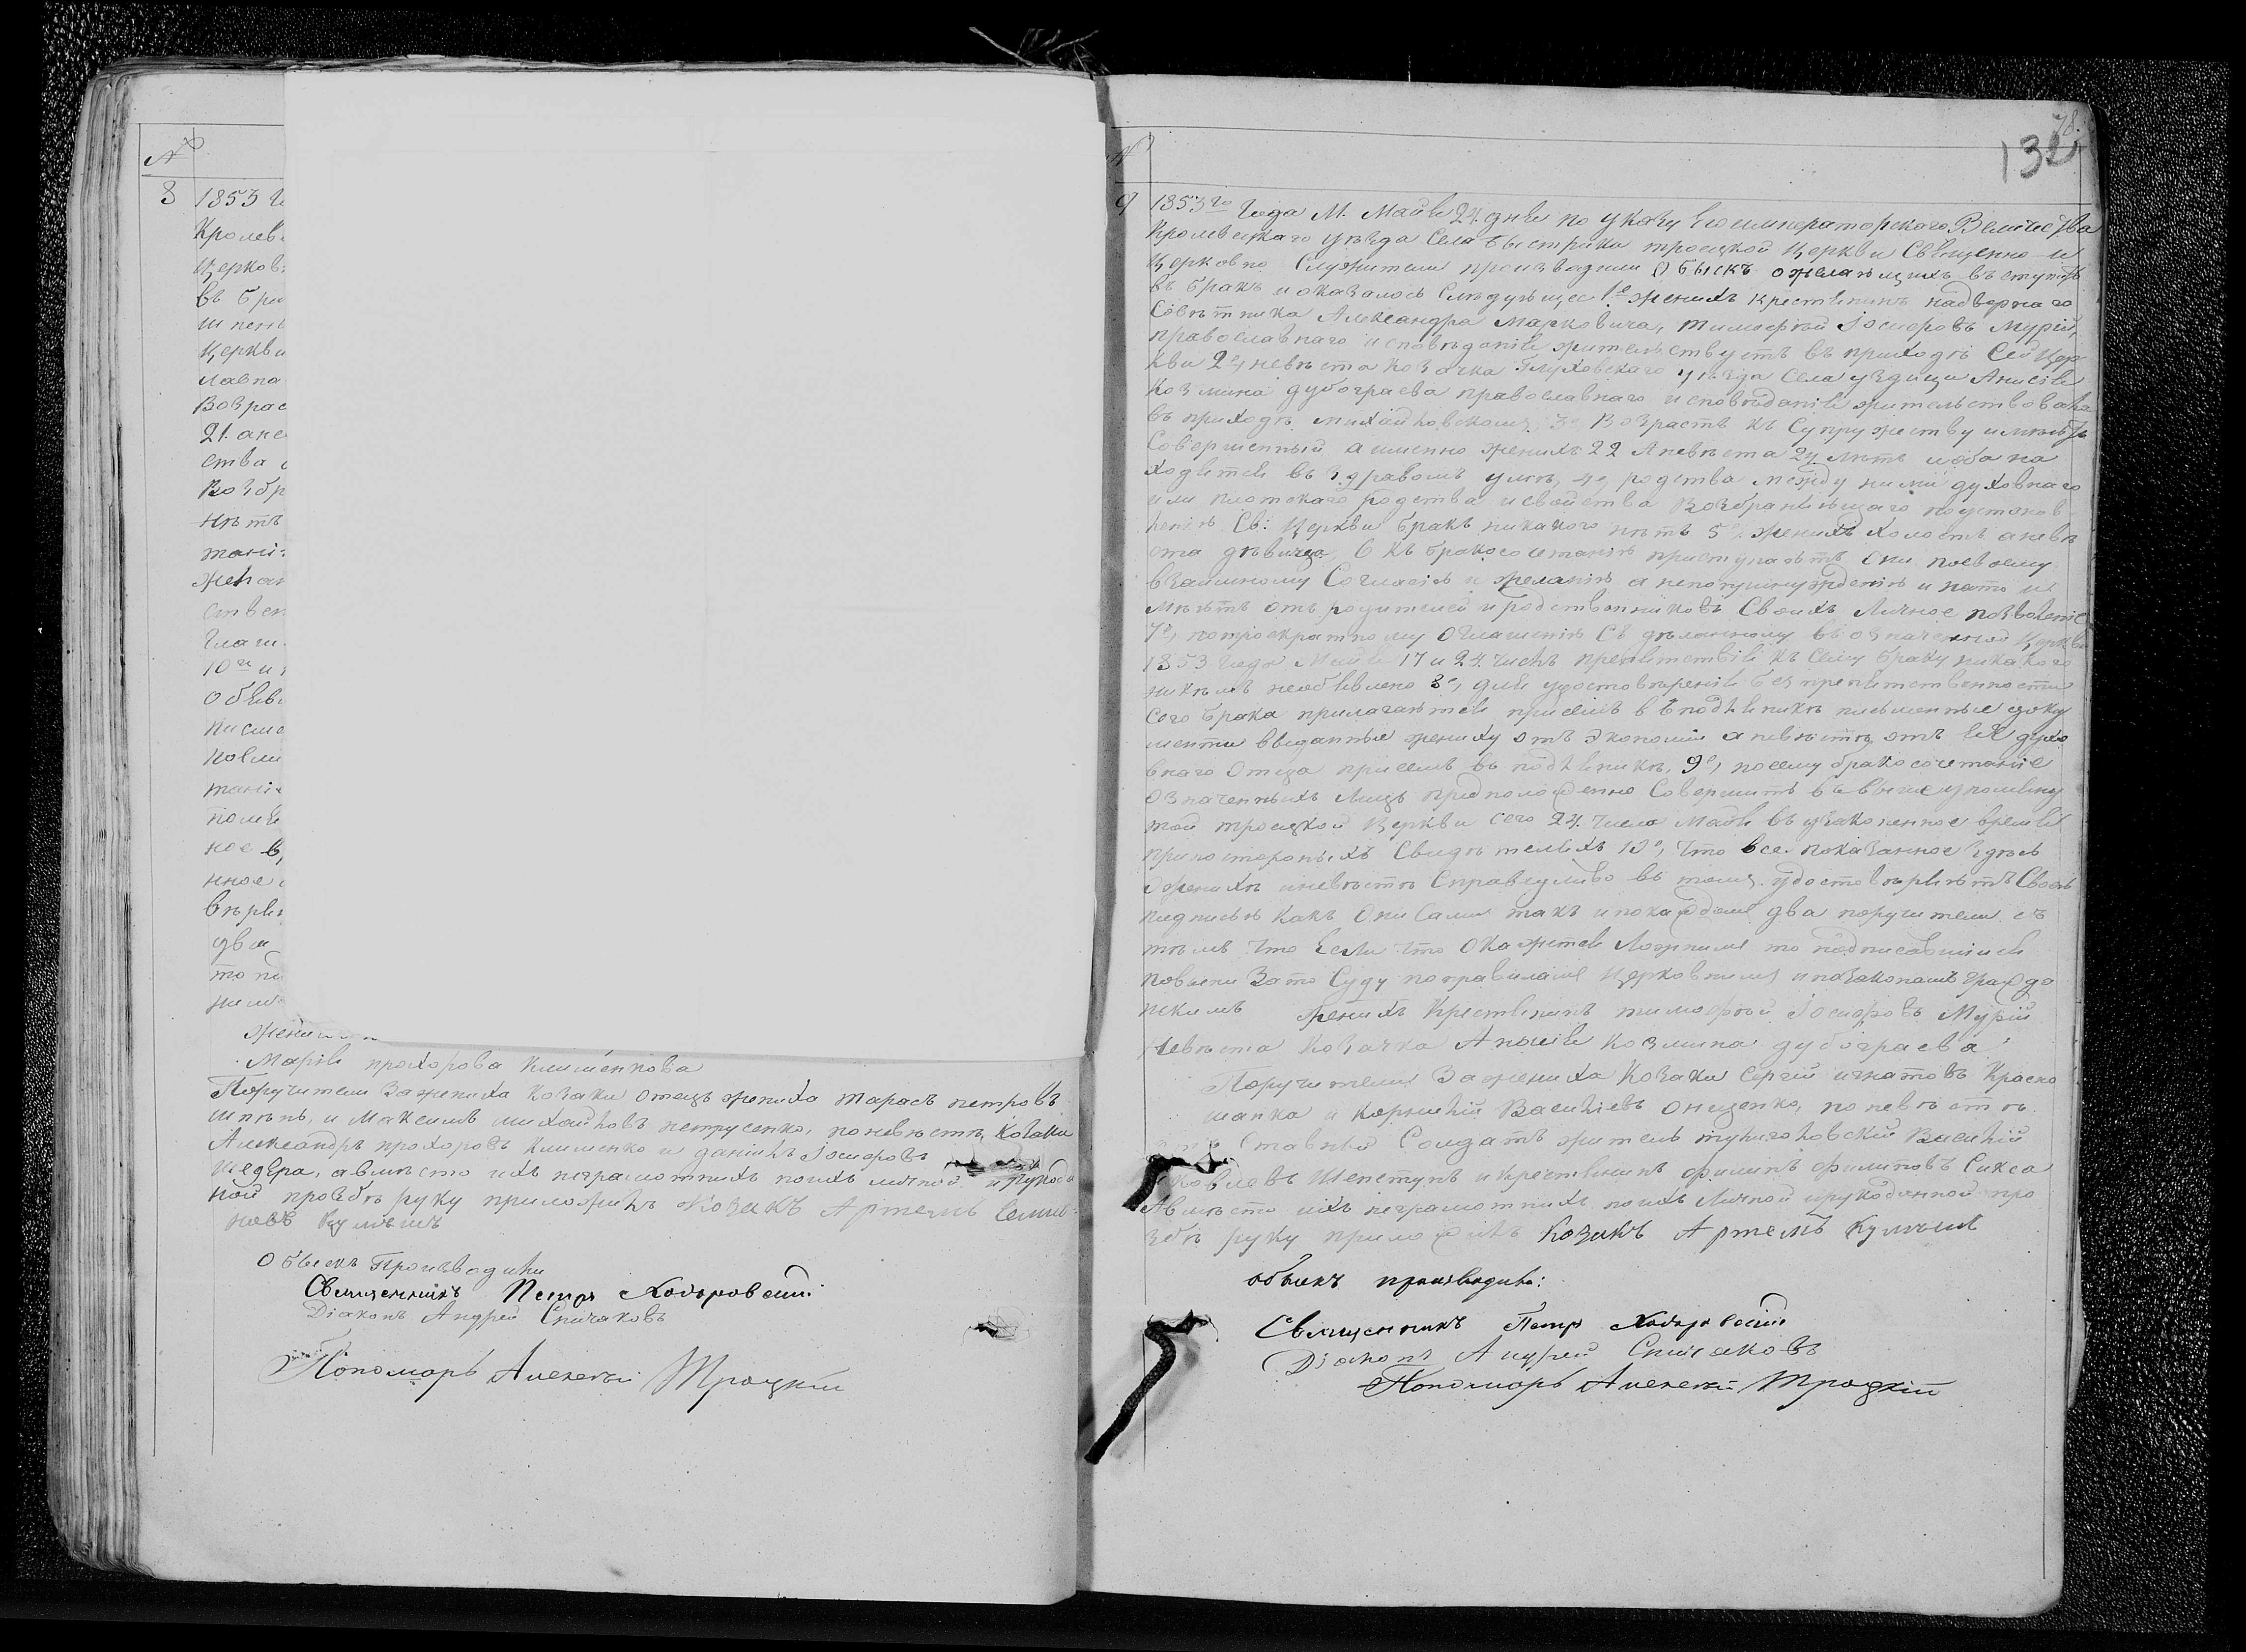 №
8 1853 Го
Кролев
Церков
въ бра
Шпенъ
Церкви
лавна
Возрас
21. а не
ства
Возбр
нѣтъ
тані
жела
ствен
глаш
10го и
объяв
писме
повин
тані
помя
ное в
нное
вѣря
два
то по
ним
женихъ
Марія прохорова Клименкова
Поручители Зажениха Козаки Отецъ жениха Тарасъ петровъ
Шпень, и Максимъ михайловъ петрусенко, по невѣстѣ, Козаки
Александръ прохоровъ Клименко и Даніилъ Іосифовъ
Шедера, авмѣсто ихъ неграмотныхъ поихъ личной и рукода
ной прозбѣ руку приложилъ Козакъ Артемъ Семио
новъ Кулѣшъ
Обыскъ Производили
Священникъ Петръ Ходоровскій
Діаконъ Андрей Спичаковъ
Пономарь Алексѣй Троцкій
78.
132
№
9 1853го Года М. Майя 24. дня по указу Его императорского Величества
Кролевецкаго уѣзда Села быстрика троецкой Церкви Священно и
Церковно Служители производили Обыскъ ожелающихъ вступить
въ бракъ и оказалось Слѣдующее 1е женихъ крестянинъ надворнаго
Совѣтника Александра Марковича, Тимофѣй Іосифовъ Мурій,
православнаго исповѣданія жительствуетъ въ приходѣ Сей Цер
кви 2е, невѣста козачка Глуховскаго уѣзда Села уздици Анисія
Козмина дубограева православнаго исповѣданія жительствовала
въ приходѣ михайловскомъ, 3е Возрастъ къ Супружеству имѣютъ
Совершенный а именно женихъ 22 Аневѣста 24 лѣтъ иоба на
ходятся въ здравомъ умѣ, 4е родства между ними духовнаго
или плотскаго родства исвойства Возбраняющаго поустанов
ленію Св: Церкви бракъ никакого нѣтъ 5е, женихъ холостъ аневѣ
ста дѣвица, 6 Къ бракосочетанію приступаютъ Они посвоему
взаимному Согласію и желанію а непопринужденію и нато и
мѣютъ отъ родителей иродственниковъ Своихъ Личное позволеніе
7е, потроекратному Оглашенію Сдѣланному въ означенной Церкви
1853 года Майя 17 и 24. числъ препятствія къ сему браку никакого
никѣмъ необъявлено 8е, для удостовѣренія безпрепятственности
Сего брака прилагаются присемъ въ подлинникѣ письменные доку
менти выданные жениху отъ Экономіи а невѣстѣ отъ ея духо
внаго Отца присемъ въ подлинникѣ, 9е, посему бракосочетаніе
Означенныхъ Лицъ предположенно Совершить въ вышеупомяну
той троецкой Церкви сего 24. числа Майя въ узаконенное время
припостороныхъ Свидѣтеляхъ 10е, Что все показанное здѣсь
О женихѣ иневѣстѣ Справедливо въ томъ удостовѣряютъ Своею
подписью Какъ Они Сами такъ и покаждомъ два поручители съ
тѣмъ что Если что Окажется Ложнимъ то подписавшіися
повинни Зато Суду поправиламъ Церковнимъ и позаконамъ гражда
нскимъ Женихъ Крестянинъ тимофѣй Іосифовъ Мурій
Невѣста Козачка Анисія Козмина дубограева
Поручители Зажениха Козаки Сергій игнатовъ Красно
шапка и Корнилій Васильевъ Онищенко, поневѣстѣ
Отставный Солдатъ житель тулиголовскій Василій
Яковлевъ Шептунъ и Крестянинъ филипъ филиповъ Сикса
Авмѣсто ихъ неграмотныхъ поихъ Личной ирукоданной про
збѣ руку приложилъ Козакъ Артемъ Кулѣшъ
обыскъ производили:
Священникъ Петръ Ходоровскій
Діаконъ Андрей Спичаковъ
Пономарь Алексѣй Троцкій